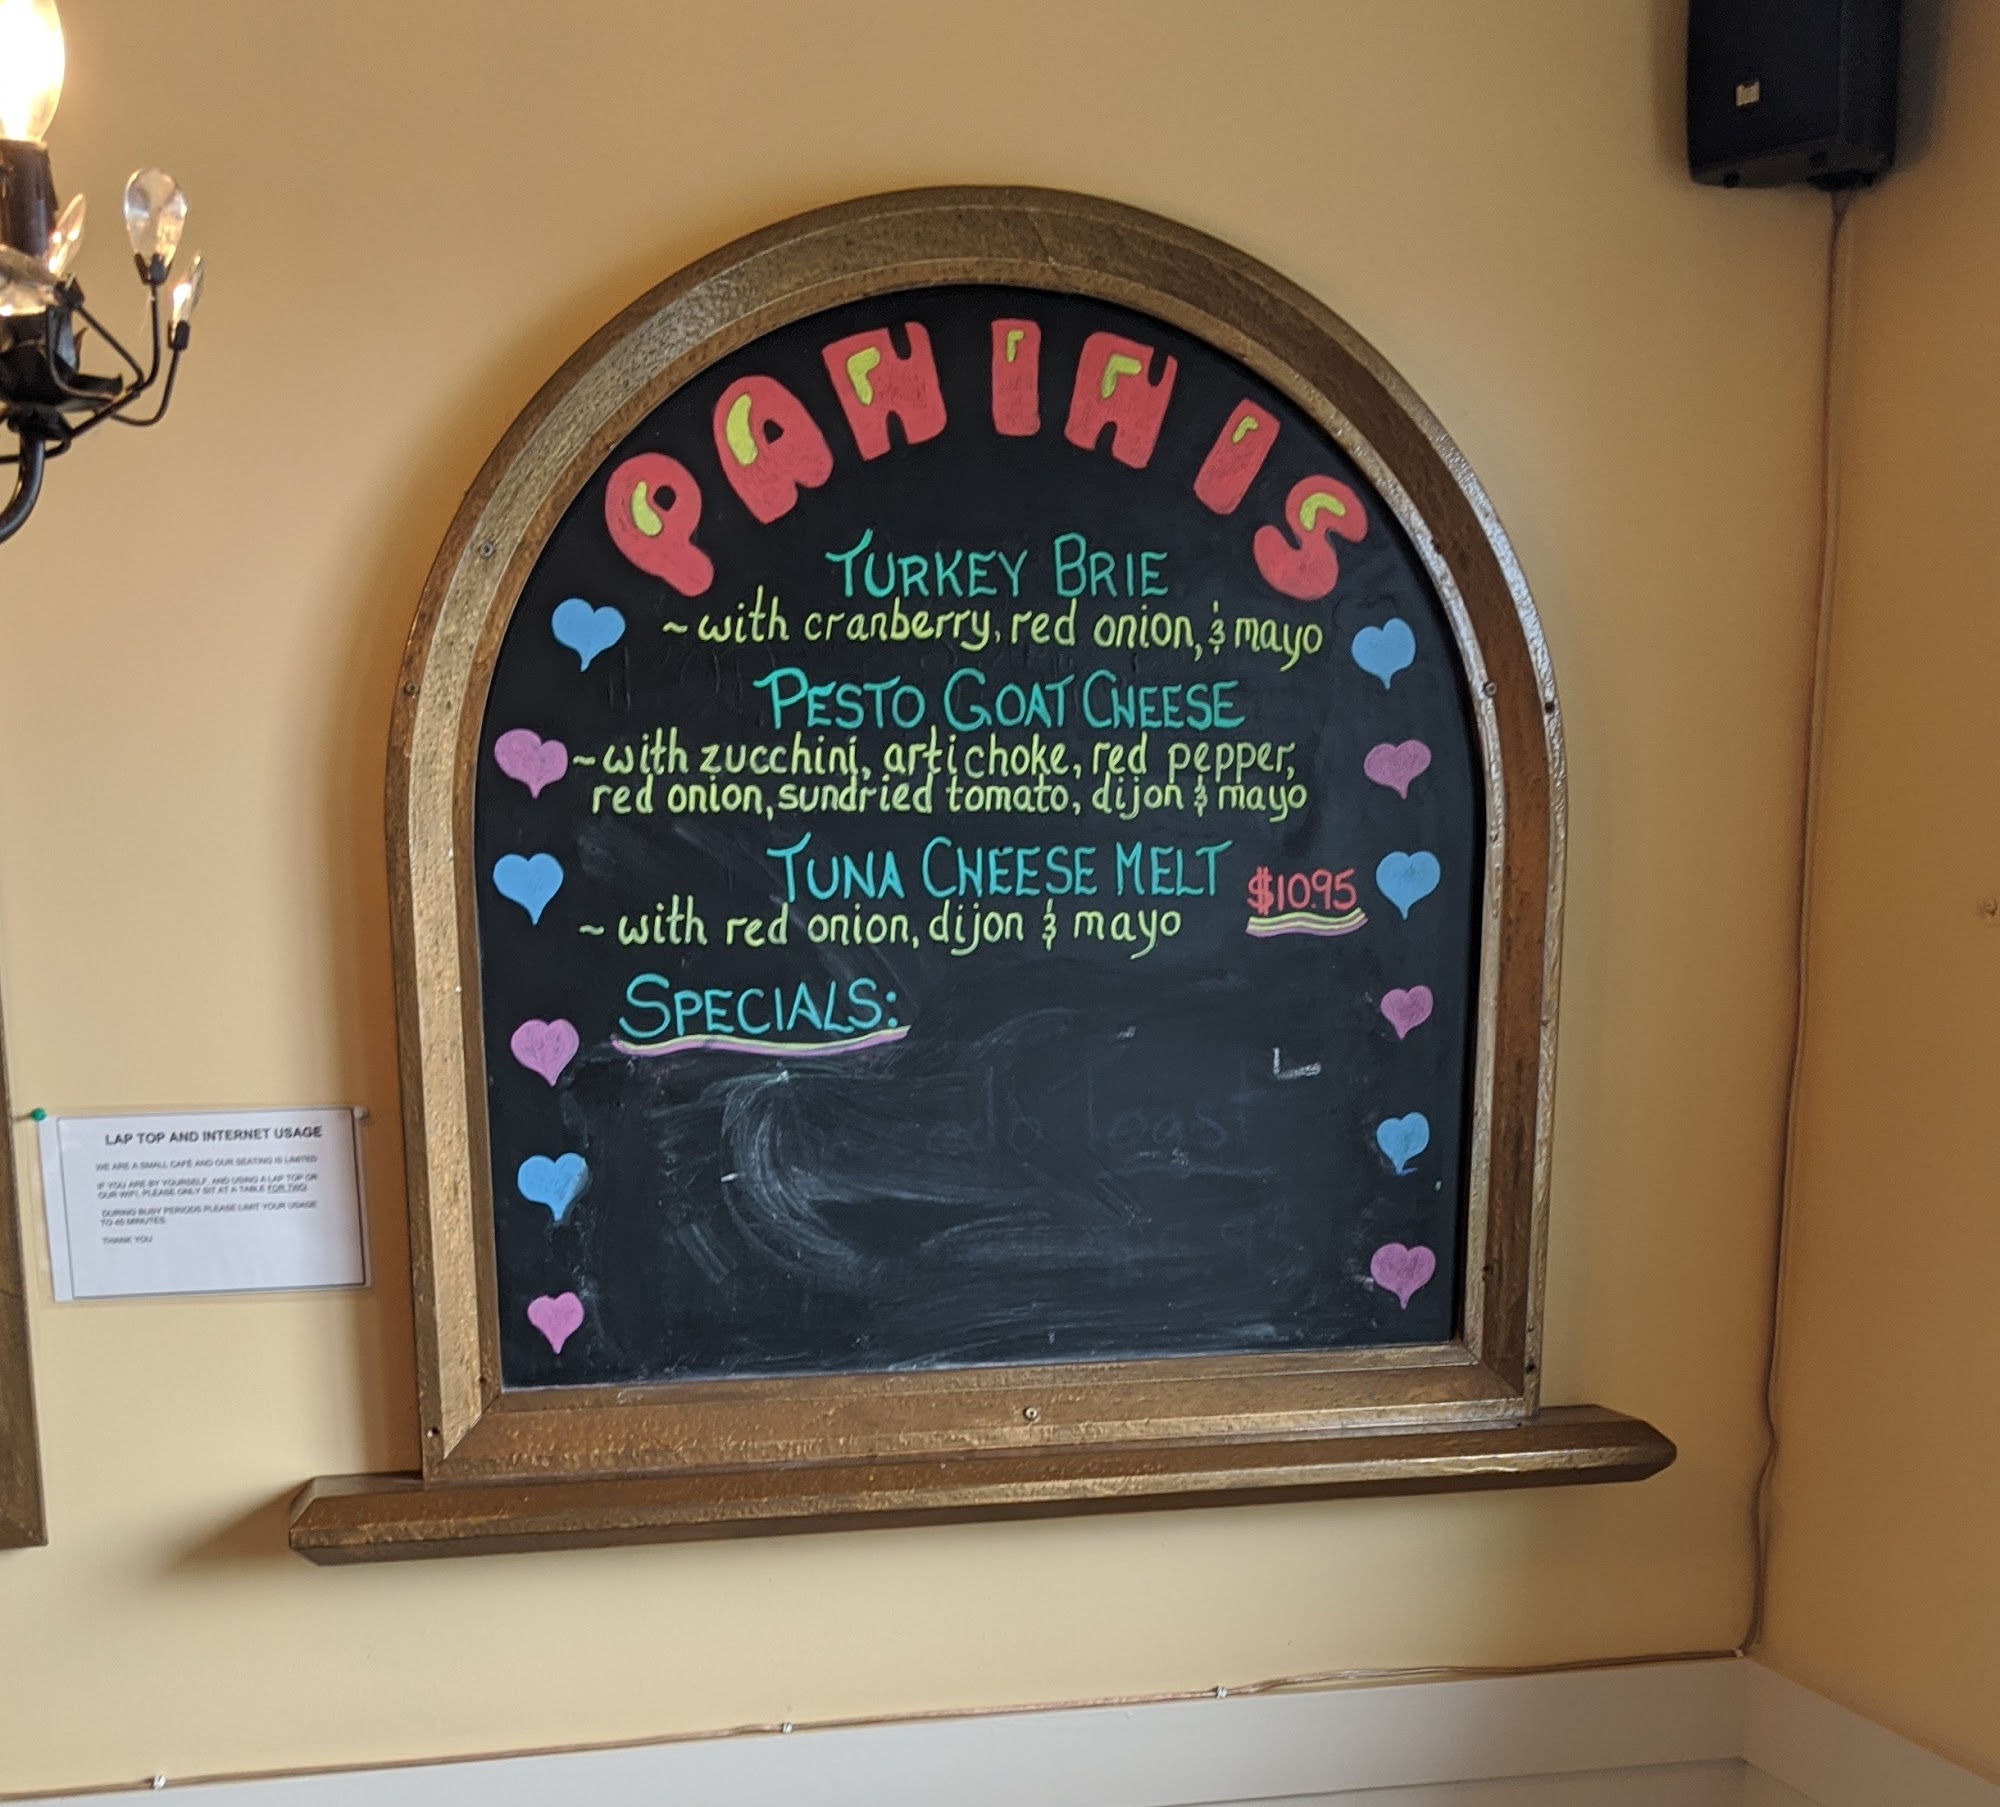 PANINIS
TURKEY BRIE
~with cranberry, red onion, & mayo
PESTO GOAT CHEESE
~with zucchini, artichoke, red pepper,
red onion, sundried tomato, dijon & mayo
TUNA CHEESE MELT $10.95
~with red onion, dijon & mayo
SPECIALS:
LAP TOP AND INTERNET USAGE
WE ARE A SMALL CAFÉ AND OUR SEATING IS LIMITED
IF YOU ARE BY YOURSELF, AND USING A LAP TOP OR
OUR WIFI, PLEASE ONLY SIT AT A TABLE FOR TWO.
DURING BUSY PERIODS PLEASE LIMIT YOUR USAGE
TO 45 MINUTES
THANK YOU